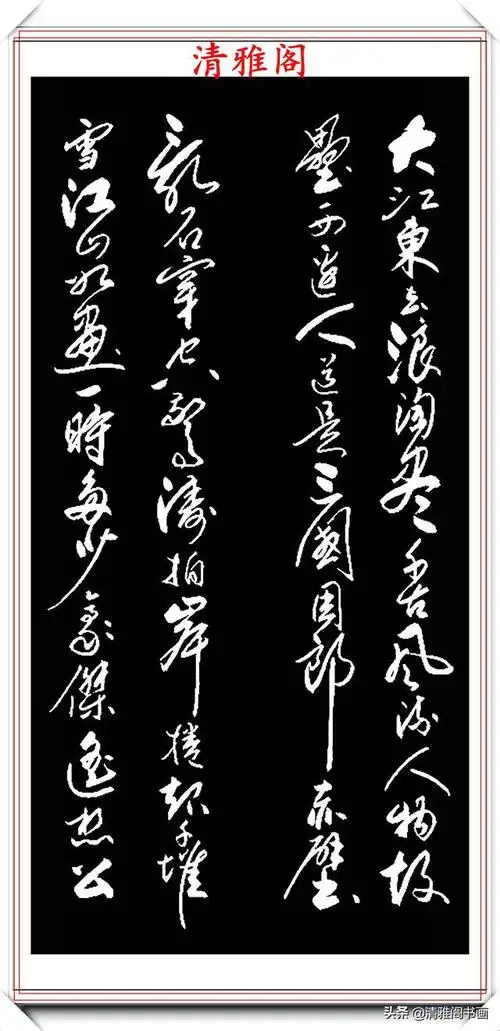 清雅阁
大江東去浪淘盡千古風流人物故
壘西邊人道是三國周郎赤壁
亂石穿空驚濤拍岸捲起千堆
雪江山如畫一時多少豪傑遙想公
头条 @清雅阁书画